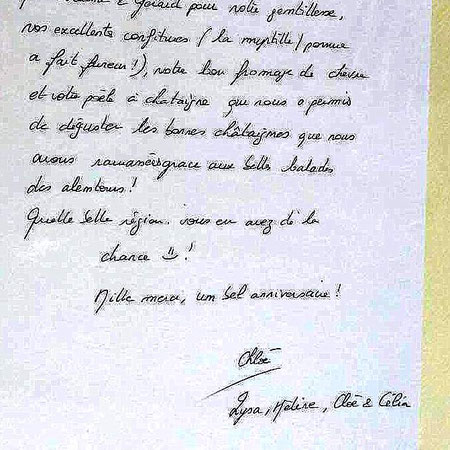 & Gérard pour votre gentillesse,
vos excellente confitures (la myrtille/pomme
a fait fureur!), votre bon fromage de chèvre
et votre poêle à chataigne que nous a permis
de déguster les bonnes châtaignes que nous
avons ramassées grace aux belles balades
des alentours!
Quelle belle région. vous en avez de la
chance !
Mille merci, un bel anniversaire!
Chloé
Lysa, Méline, Cloé & Célia